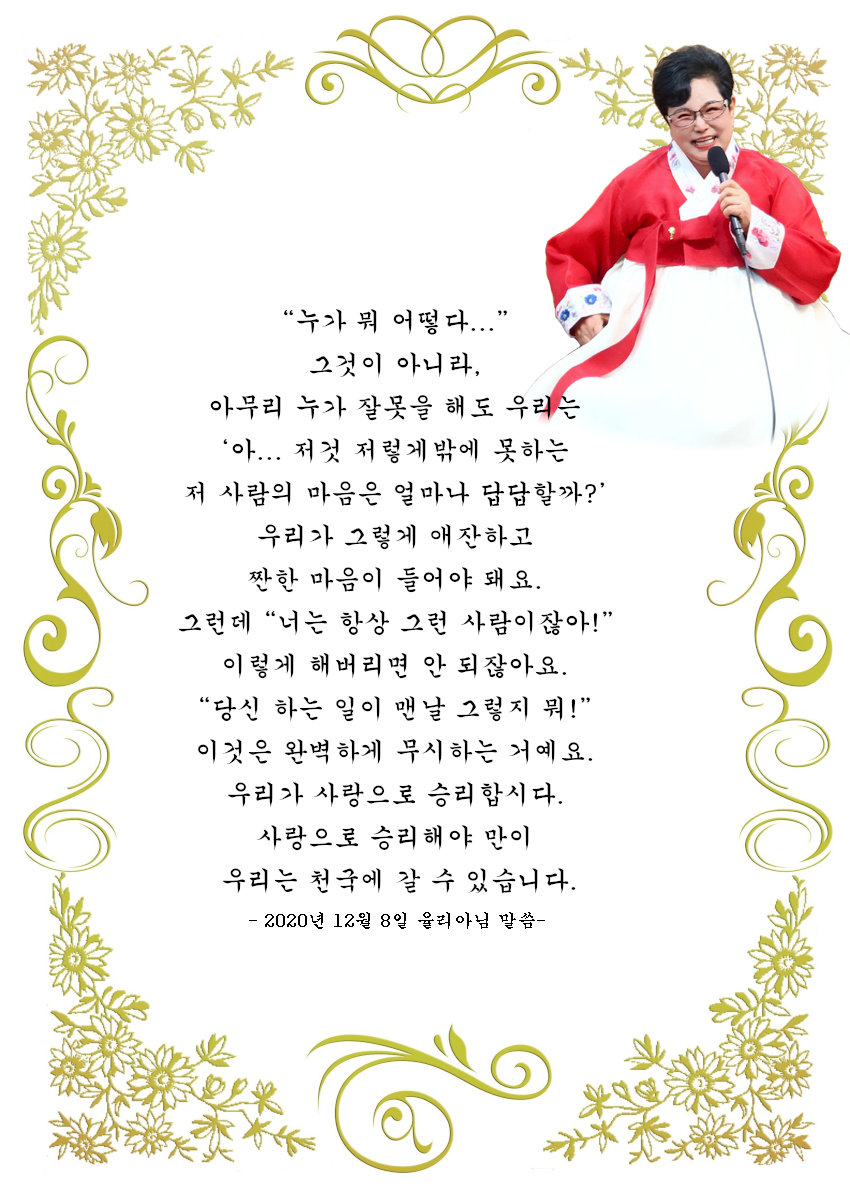 “누가 뭐 어떻다...”
그것이 아니라,
아무리 누가 잘못을 해도 우리는
‘아... 저것 저렇게밖에 못하는
저 사람의 마음은 얼마나 답답할까?’
우리가 그렇게 애잔하고
짠한 마음이 들어야 돼요.
그런데 “너는 항상 그런 사람이잖아!”
이렇게 해버리면 안 되잖아요.
“당신 하는 일이 맨날 그렇지 뭐!”
이것은 완벽하게 무시하는 거예요.
우리가 사랑으로 승리합시다.
사랑으로 승리해야 만이
우리는 천국에 갈 수 있습니다.
- 2020년 12월 8일 율리아님 말씀-